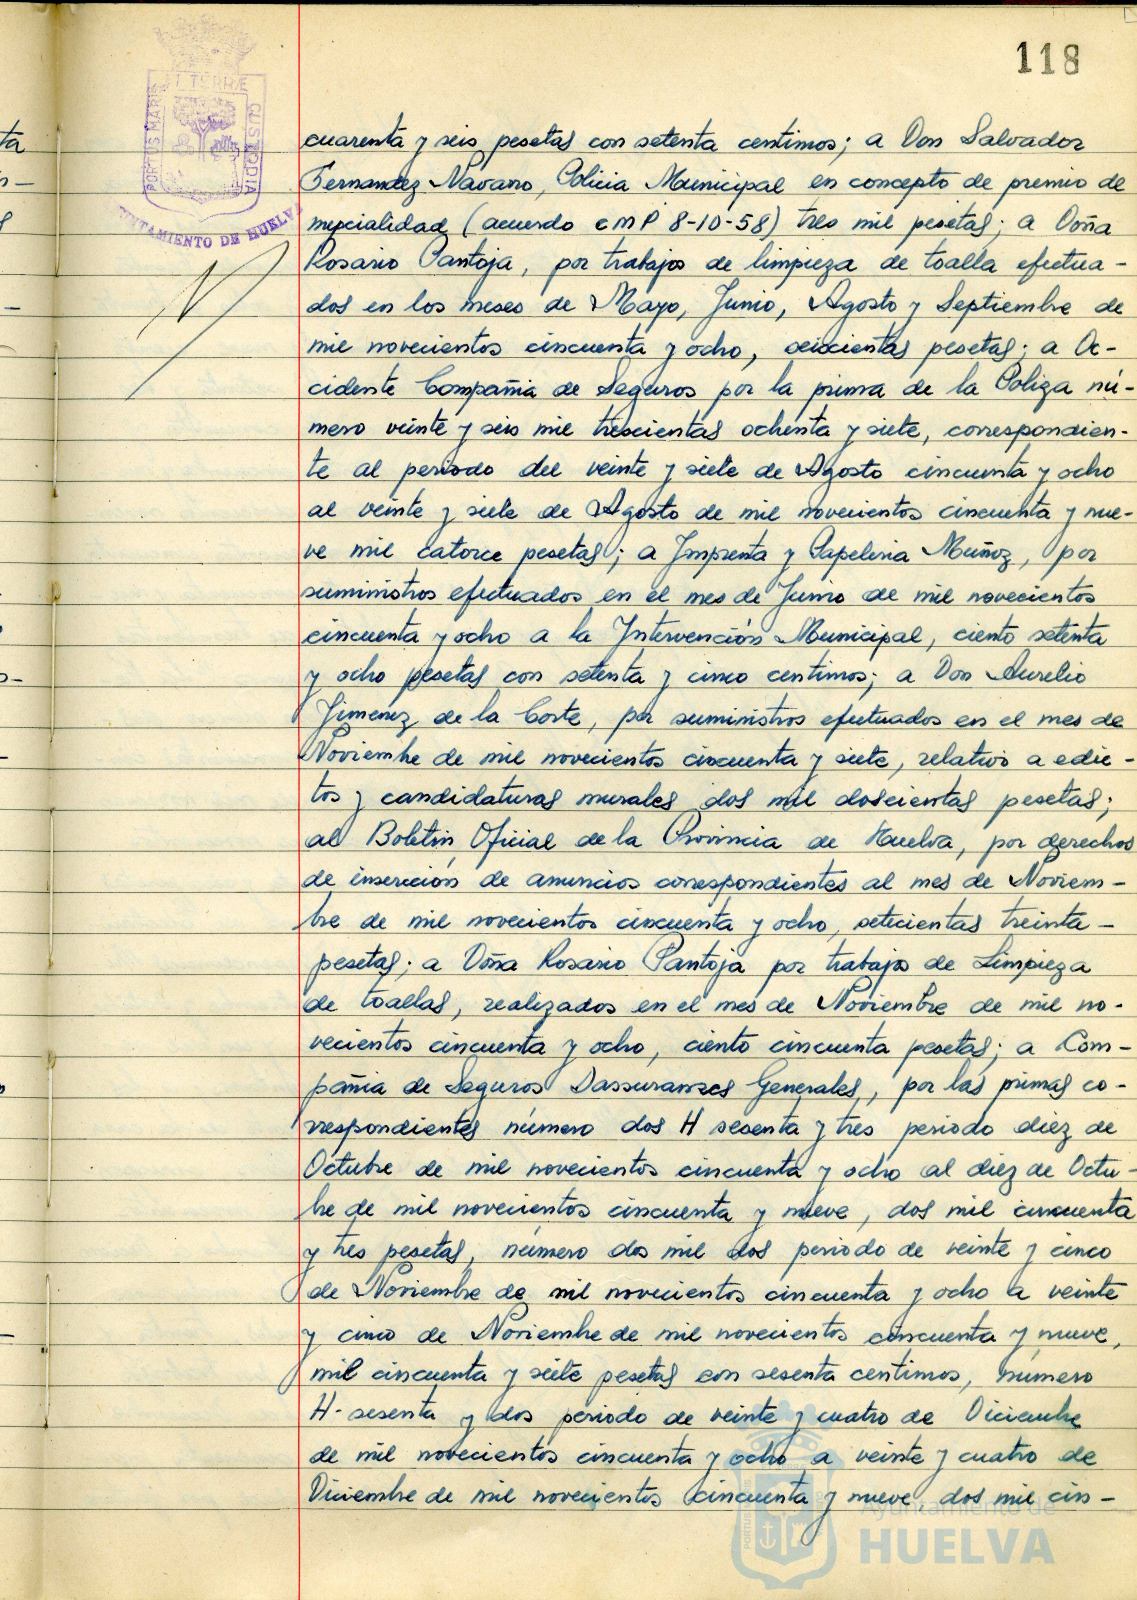 118
PORTUS MARIS
ET TERRÆ
CUSTODIA
AYUNTAMIENTO DE HUELVA
cuarenta y seis pesetas con setenta centimos; a Don Salvador
Fernandez Navarro, Policia Municipal en concepto de premio de
nupcialidad (acuerdo CMP 8-10-58) tres mil pesetas; a Doña
Rosario Pantoja, por trabajos de limpieza de toalla efectua-
dos en los meses de Mayo, Junio, Agosto y Septiembre de
mil novecientos cincuenta y ocho, seiscientas pesetas; a Oc-
cidente Compañia de Seguros por la prima de la Poliza nú-
mero veinte y seis mil trescientas ochenta y siete, correspondien-
te al periodo del veinte y siete de Agosto cincuenta y ocho
al veinte y siete de Agosto de mil novecientos cincuenta y nue-
ve mil catorce pesetas; a Imprenta y Papeleria Muñoz, por
suministros efectuados en el mes de Junio de mil novecientos
cincuenta y ocho a la Intervención Municipal, ciento setenta
y ocho pesetas con setenta y cinco centimos; a Don Aurelio
Jimenez de la Corte, por suministros efectuados en el mes de
Noviembre de mil novecientos cincuenta y siete, relativo a edic-
tos y candidaturas murales dos mil doscientas pesetas;
al Boletin Oficial de la Provincia de Huelva, por derechos
de inserción de anuncios correspondientes al mes de Noviem-
bre de mil novecientos cincuenta y ocho, setecientas treinta-
pesetas; a Doña Rosario Pantoja por trabajo de Limpieza
de toallas, realizados en el mes de Noviembre de mil no-
vecientos cincuenta y ocho, ciento cincuenta pesetas; a Com-
pañia de Seguros Dassurances Generales, por las primas co-
rrespondientes número dos H sesenta y tres periodo diez de
Octubre de mil novecientos cincuenta y ocho al diez de Octu-
bre de mil novecientos cincuenta y nueve, dos mil cincuenta
y tres pesetas, número dos mil dos periodo de veinte y cinco
de Noviembre de mil novecientos cincuenta y ocho a veinte
y cinco de Noviembre de mil novecientos cincuenta y nueve,
mil cincuenta y siete pesetas con sesenta centimos, número
H-sesenta y dos periodo de veinte y cuatro de Diciembre
de mil novecientos cincuenta y ocho a veinte y cuatro de
Diciembre de mil novecientos cincuenta y nueve, dos mil cin-
Ayuntamiento de
HUELVA